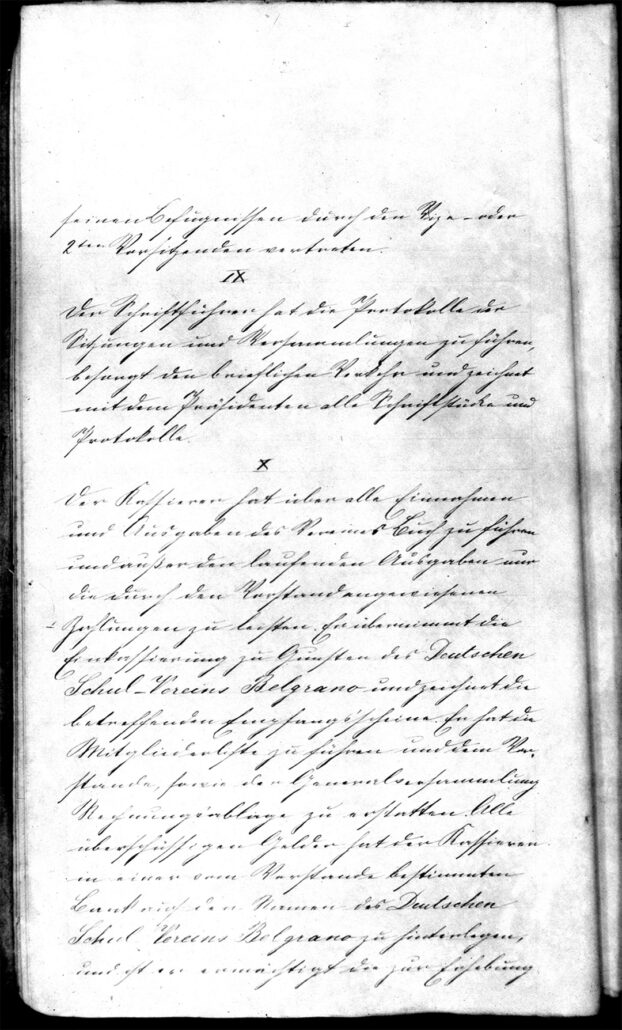 seinen Befugnissen durch den Vize- oder
2ten Vorsitzenden vertreten.
IX
Der Schriftführer hat die Protokolle der
Sitzungen und Versammlungen zu führen,
besorgt den brieflichen Verkehr und zeichnet
mit dem Präsidenten alle Schriftstücke und
Protokolle.
X
Der Kassierer hat über alle Einnahmen
und Ausgaben des Vereines Buch zu führen
und außer den laufenden Ausgaben nur
die durch den Vorstand angewiesenen
Zahlungen zu leisten. Er übernimmt die
Einkassierung zu Gunsten des Deutschen
Schul-Vereins Belgrano und zeichnet die
betreffenden Empfangsscheine. Er hat die
Mitgliederliste zu führen und dem Vor-
stande, sowie der Generalversammlung
Rechnungsablage zu erstatten. Alle
überschüssigen Gelder hat der Kassierer
in einer vom Vorstande bestimmten
Bank auf den Namen des Deutschen
Schul-Vereins Belgrano zu hinterlegen,
und ist er ermächtigt die zur Erhebung